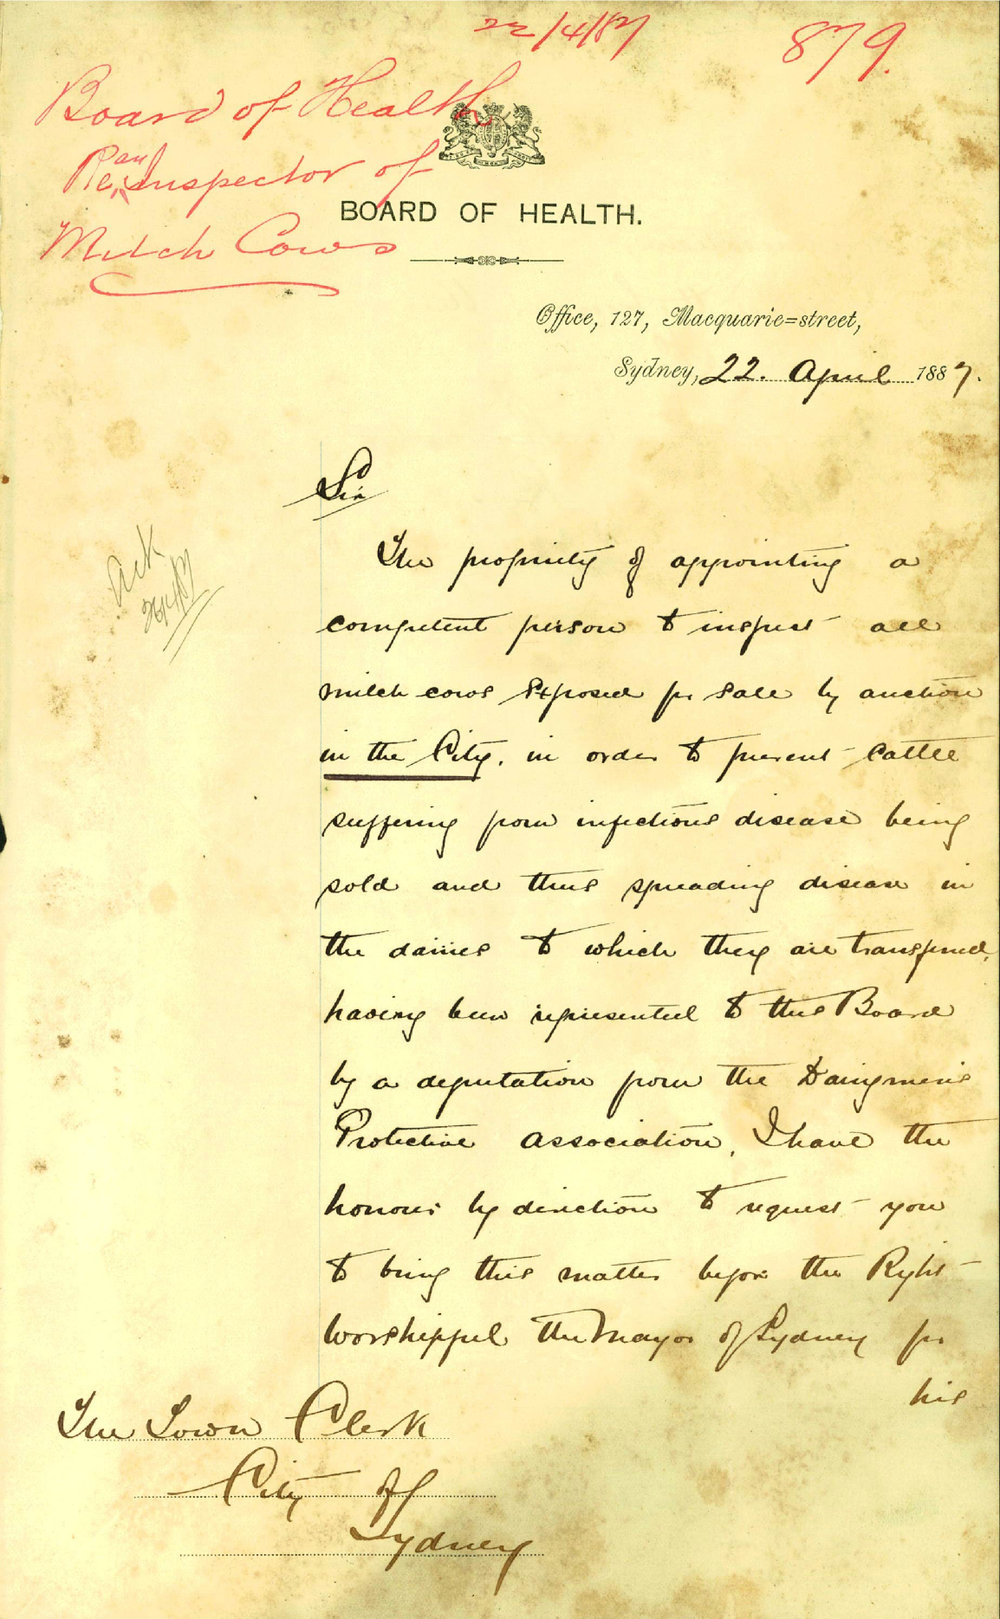 22/4/87
879.
Board of Health
Re an Inspector of
Milch Cows
BOARD OF HEALTH.
Office, 127, Macquarie=street,
Sydney, 22. April 1887.
Ack
26/4/87
Sir
The propriety of appointing a
competent person to inspect all
milch cows exposed for sale by auction
in the City, in order to prevent cattle
suffering from infectious disease being
sold and thus spreading disease in
the dairies to which they are transferred,
having been represented to this Board
by a deputation from the Dairymen's
Protective Association, I have the
honour by direction to request you
to bring this matter before the Right
Worshipful the Mayor of Sydney for
his
The Town Clerk
City of
Sydney